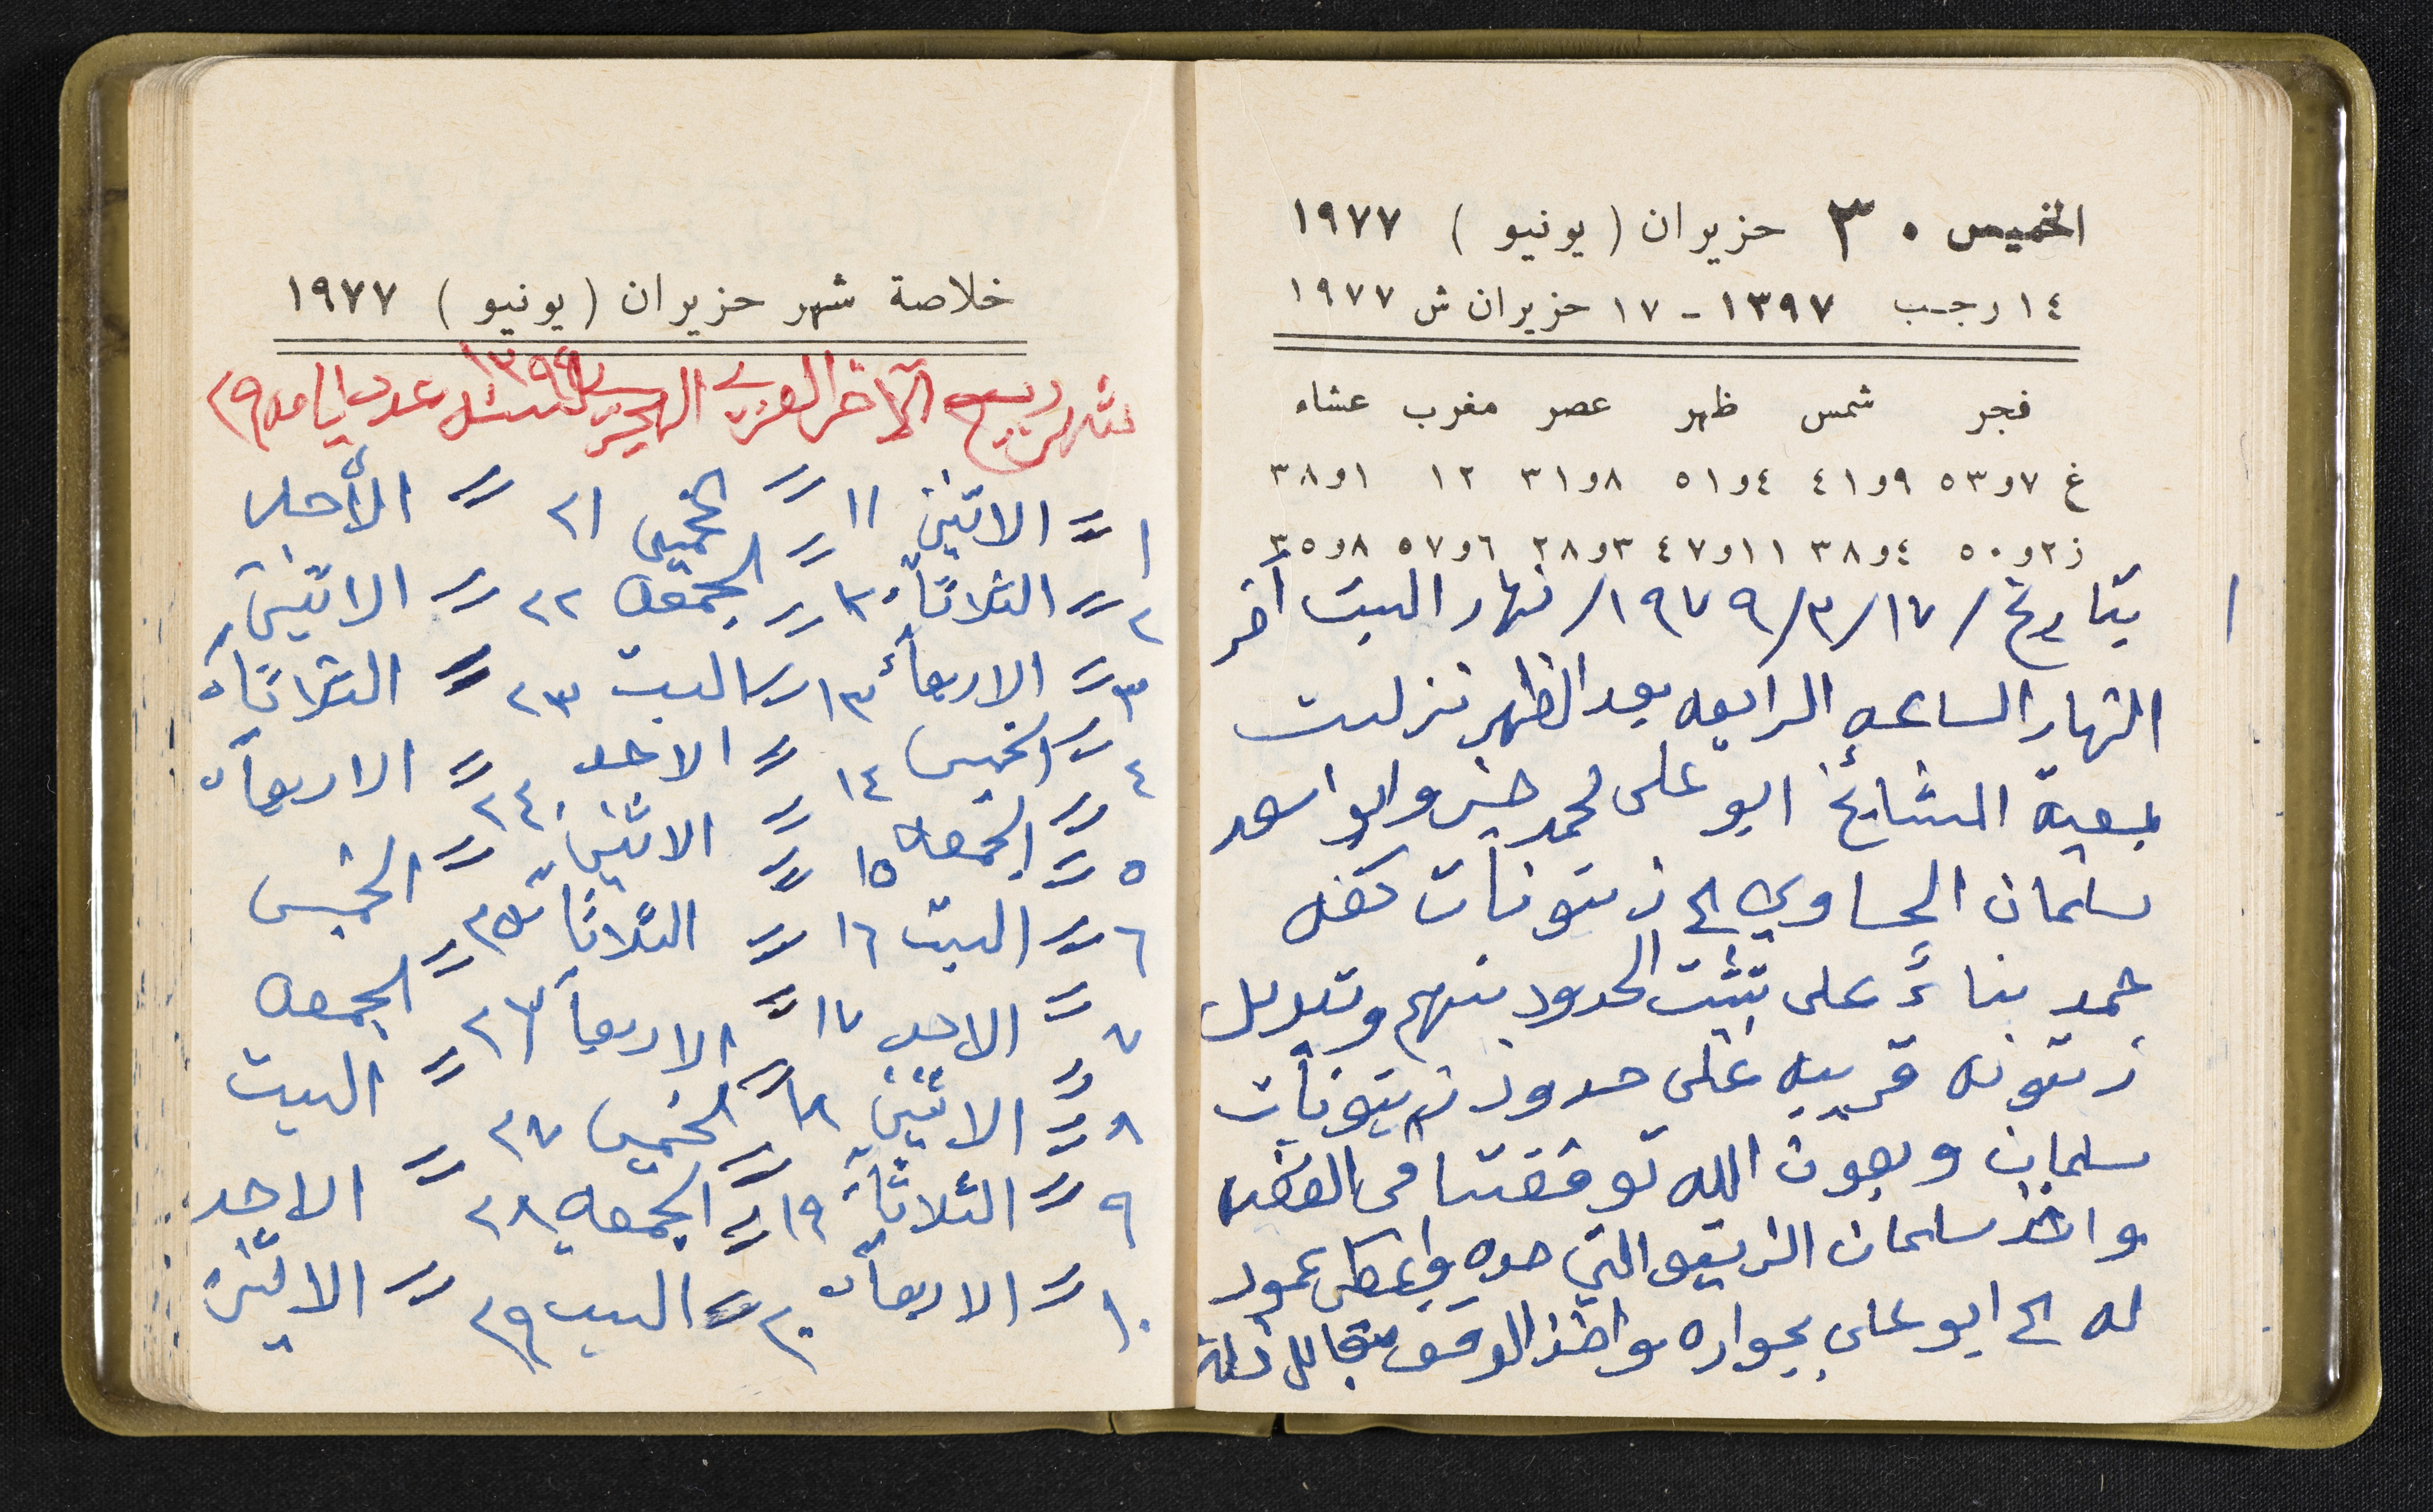 الخميس ٣٠ حزيران ( يونيو ) ١٩٧٧
١٤ رجب ١٣٩٧ - ١٧ حزيران ش ١٩٧٧
فجر شمس ظهر عصر مغرب عشاء
غ ٧و٥٣ ٩و٤١ ٤و٥١ ٨و٣١ ١٢ ١و٣٨
ز ٢و٥٠ ٤و٣٨ ١١و٤٧ ٣و٢٨ ٦و٥٧ ٨و٣٥
١ بتاريخ /١٧/٣/١٩٧٩/ نهار السبت آخر
النهار الساعه الرابعه بعد الظهر نزلت
بمعية المشائخ ابو علي محمد خير وابو اسعد
سلمان الحساوي الى زيتونات كفر
حمد بناءً على تثبيت الحدود بينهم وتبديل
زيتونه قريبه على حدود زيتونات
سلمان وبعون الله توفقنا في القضيه
واخذ سلمان الزيتونه التي حده واعطى عمود
له الى ابو علي بجواره واخذ الوقف مقابل
خلاصة شهر حزيران ( يونيو ) ١٩٧٧
شهر ربيع الآخر العربي الهجري لسنة ١٣٩٩ عدد ايامه ٢٩
١ = الاثنين ١١ = الخميس ٢١ = الأحد
٢ = الثلاثاء ١٢ = الجمعه ٢٢ = الاثنين
٣ = الاربعاء ١٣ = السبت ٢٣ = الثلاثاء
٤ = الخميس ١٤ = الاحد ٢٤ = الاربعاء
٥ = الجمعه ١٥ = الاثنين ٢٥ = الخميس
٦ = السبت ١٦ = الثلاثاء ٢٦ = الجمعه
٧ = الاحد ١٧ = الاربعاء ٢٧ = السبت
٨ = الاثنين ١٨ = الخميس ٢٨ = الاحد
٩ = الثلاثاء ١٩ = الجمعه ٢٩ = الاثنين
١٠ = الاربعاء ٢٠ = السبت